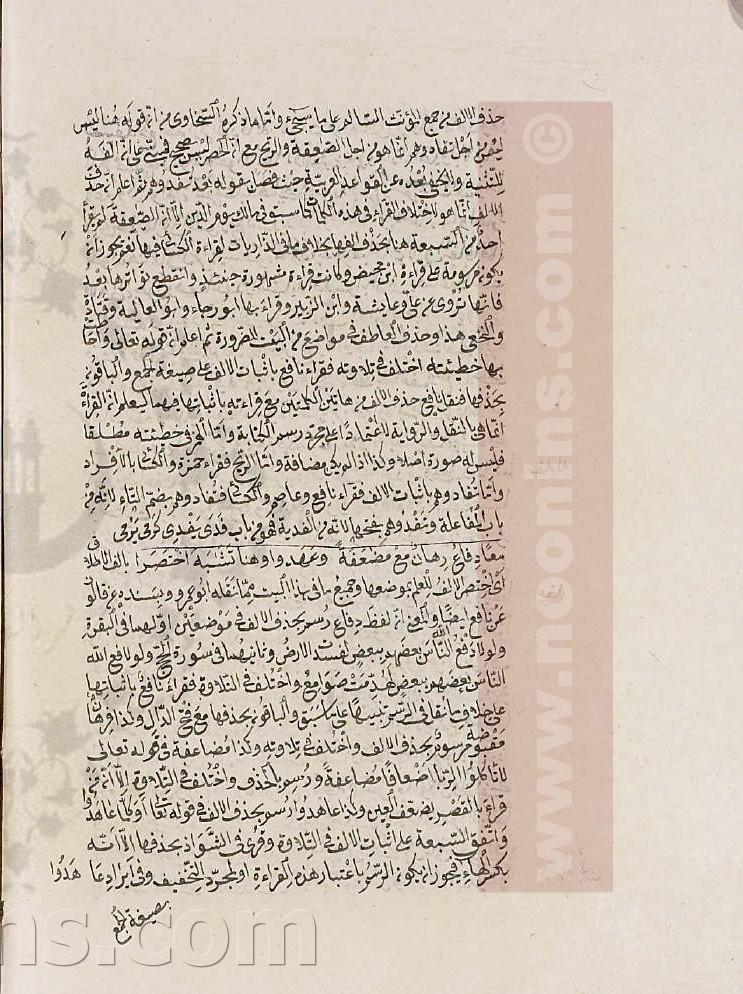 حذف الالف من جمع المؤنث السالم على ما سيجيء واما ما ذكره السخاوى من ان قوله هنا ليس
ليحصن من اجل تفادوهم انما هو من اجل الصعيقة والريح مع ان الحصر ليس بصحيح على ان الفه
للتثنية والخ بعده عن القواعد العربية حيث فصل بقوله بعد تفدوهم ثم اعلم ان حذف
الالف انما هو اختلاف القراء في هذه الكلمات كما سبق في مالك يوم الدين الا ان الصعيقة لم يقرأ
احد من السبعة هنا بحذف الفها بخلاف ما في الذاريات لقراءة الكسائي فيها نعم يجوز ان
يكون مرسومة على قراءة ابن محيصن وكانت قراءة مشهورة حينئذ وانقطع تواترها بعد
فانها تروى عن على وعايشة وابن الزبير وقرأ بها ابو رجاء وابو العالية وقتادة
والنخعى هذا وحذف العاطف في مواضع من البيت للضرورة ثم اعلم ان قوله تعالى واحاطت
بها خطيئته اختلف في تلاوته فقراء نافع باثبات الالف على صيغة الجمع والباقون
بحذفها فنقل نافع حذف الالف من هاتين الكلمتين مع قراءته باثباتها فيهما ليعلم ان القراءة
انما هى بالنقل والرواية لا اعتمادا على مجرد رسم الكتابة واما الهمز في خطيئته مطلقا
فليس له صورة اصلا وكذا اذا لم يكن مضافة واما الريح فقراء حمزة والكسائي بالافراد
واما تفادوهم باثبات الالف فقراء نافع وعاصم والكسائي تفادوهم بضم التاء لانه من
باب المفاعلة وتفدوهم بفتحها لانه من الفدية فهو من باب فدى يفدى كرمى يرمى
معا دفاع رهان مع مضعفة وعهدوا وهنا تشبه اختصرا بالف الاطلاق
اى اختصر الالف للعلم بوضعها وجميع ما في هذا البيت مما نقله ابو عمرو بسنده عن قالون
عن نافع ايضا والمعنى ان لفظ دفاع رسم بحذف الالف في موضعين اولهما في البقرة
ولولا دفع الله الناس بعضهم ببعض لفسدت الارض وثانيهما في سورة الحج ولولا دفع الله
الناس بعضهم ببعض لهدمت صوامع واختلف في التلاوة فقراء نافع باثباتها
على خلاف ما نقل في الرسم تنبيها على ما سبق والباقون بحذفها مع فتح الدال وكذا فرهان
مقبوضة مرسوم بحذف الالف واختلف في تلاوته وكذا مضاعفة في قوله تعالى
لا تاكلوا الربا اضعافا مضاعفة رسم بالحذف واختلف في التلاوة الا ان من
قراء بالقصر يضعف العين وكذا عاهدوا رسم بحذف الالف في قوله تعالى اوكلما عاهدوا
واتفق السبعة على اثبات الالف في التلاوة وقرى في الشواذ بحذفها الا انه
بكسر الهاء فيجوز ان يكون الرسم باعتبار هذه القراءة او لمجرد التخفيف وفي ايراد عاهدوا
بصيغة الجمع
www.noonins.com ©
ns.com